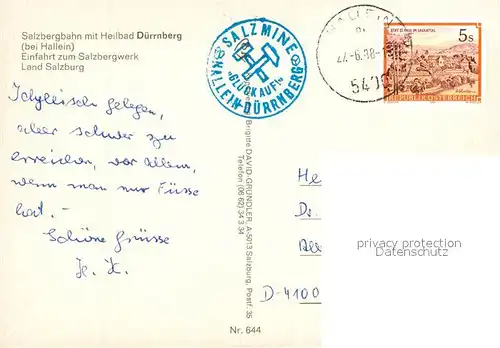 Salzbergbahn mit Heilbad Dürrnberg
(bei Hallein)
Einfahrt zum Salzbergwerk
Land Salzburg
SALZMINE
„GLÜCK AUF!"
HALLEIN-DÜRRNBERG
HALLEIN
22.-6.88-
5400
5 S
STIFT ST. PAUL IM LAVANTTAL
REPUBLIK ÖSTERREICH
Idyllisch gelegen,
aber schwer zu
erreichen, vor allem,
wenn man nur Füsse
hat. -
Schöne Grüsse
H. K.
Brigitte DAVID-GRUNDLER, A-5013 Salzburg, Postf. 35
Telefon (06 62) 34 3 34
He
Dr.
D-4100
privacy protection
Datenschutz
Nr. 644